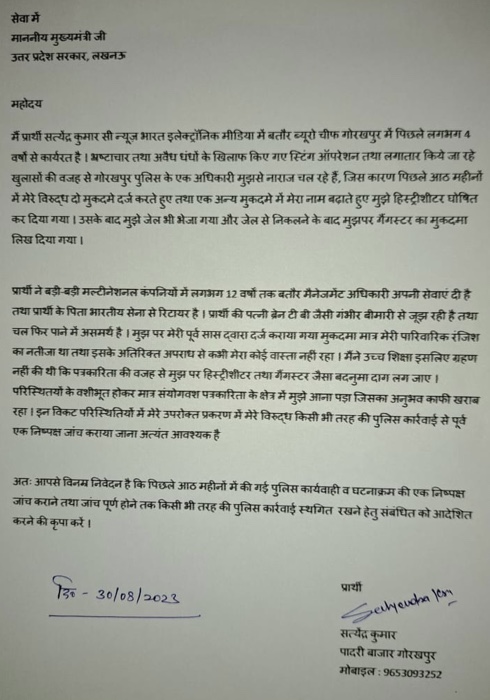 सेवा में
माननीय मुख्यमंत्री जी
उत्तर प्रदेश सरकार, लखनऊ
महोदय
मैं प्रार्थी सत्येंद्र कुमार सी न्यूज़ भारत इलेक्ट्रॉनिक मीडिया में बतौर ब्यूरो चीफ गोरखपुर में पिछले लगभग 4
वर्षों से कार्यरत है । भ्रष्टाचार तथा अवैध धंधों के खिलाफ किए गए स्टिंग ऑपरेशन तथा लगातार किये जा रहे
खुलासों की वजह से गोरखपुर पुलिस के एक अधिकारी मुझसे नाराज चल रहे हैं, जिस कारण पिछले आठ महीनों
में मेरे विरुद्ध दो मुकदमे दर्ज करते हुए तथा एक अन्य मुकदमे में मेरा नाम बढ़ाते हुए मुझे हिस्ट्रीशीटर घोषित
कर दिया गया । उसके बाद मुझे जेल भी भेजा गया और जेल से निकलने के बाद मुझपर गैंगस्टर का मुकदमा
लिख दिया गया ।
प्रार्थी ने बड़ी-बड़ी मल्टीनेशनल कंपनियों में लगभग 12 वर्षों तक बतौर मैनेजमेंट अधिकारी अपनी सेवाएं दी है
तथा प्रार्थी के पिता भारतीय सेना से रिटायर है । प्रार्थी की पत्नी ब्रेन टी बी जैसी गंभीर बीमारी से जूझ रही है तथा
चल फिर पाने में असमर्थ है । मुझ पर मेरी पूर्व सास द्वारा दर्ज कराया गया मुकदमा मात्र मेरी पारिवारिक रंजिश
का नतीजा था तथा इसके अतिरिक्त अपराध से कभी मेरा कोई वास्ता नहीं रहा । मैंने उच्च शिक्षा इसलिए ग्रहण
नहीं की थी कि पत्रकारिता की वजह से मुझ पर हिस्ट्रीशीटर तथा गैंगस्टर जैसा बदनुमा दाग लग जाए ।
परिस्थितियों के वशीभूत होकर मात्र संयोगवश पत्रकारिता के क्षेत्र में मुझे आना पड़ा जिसका अनुभव काफी खराब
रहा । इन विकट परिस्थितियों में मेरे उपरोक्त प्रकरण में मेरे विरुद्ध किसी भी तरह की पुलिस कार्रवाई से पूर्व
एक निष्पक्ष जांच कराया जाना अत्यंत आवश्यक है
अतः आपसे विनम्र निवेदन है कि पिछले आठ महीनों में की गई पुलिस कार्यवाही व घटनाक्रम की एक निष्पक्ष
जांच कराने तथा जांच पूर्ण होने तक किसी भी तरह की पुलिस कार्रवाई स्थगित रखने हेतु संबंधित को आदेशित
करने की कृपा करें ।
दि० - 30/08/2023
प्रार्थी
Satyendra Kr
सत्येंद्र कुमार
पादरी बाजार गोरखपुर
मोबाइल : 9653093252